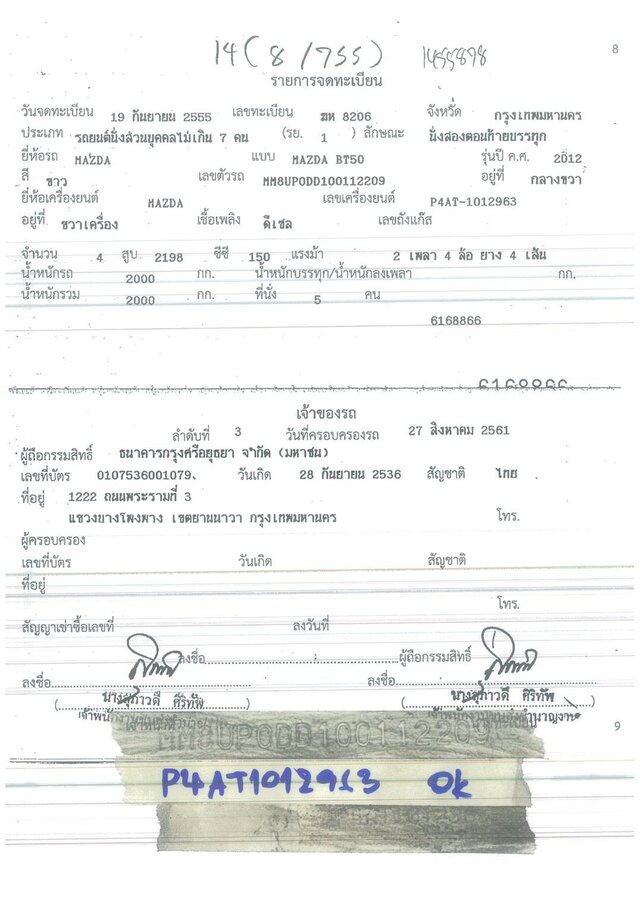 14 (8/755) 1455898
8
รายการจดทะเบียน
วันจดทะเบียน 19 กันยายน 2555 เลขทะเบียน ฆห 8206 จังหวัด กรุงเทพมหานคร
ประเภท รถยนต์นั่งส่วนบุคคลไม่เกิน 7 คน (รย. 1 ) ลักษณะ นั่งสองตอนท้ายบรรทุก
ยี่ห้อรถ MAZDA แบบ MAZDA BT50 รุ่นปี ค.ศ. 2012
สี ขาว เลขตัวรถ MM8UP0DD100112209 อยู่ที่ กลางขวา
ยี่ห้อเครื่องยนต์ MAZDA เลขเครื่องยนต์ P4AT-1012963
อยู่ที่ ขวาเครื่อง เชื้อเพลิง ดีเซล เลขถังแก๊ส
จำนวน 4 สูบ 2198 ซีซี 150 แรงม้า 2 เพลา 4 ล้อ ยาง 4 เส้น
น้ำหนักรถ 2000 กก. น้ำหนักบรรทุก/น้ำหนักลงเพลา กก.
น้ำหนักรวม 2000 กก. ที่นั่ง 5 คน
6168866
6168866
เจ้าของรถ
ลำดับที่ 3 วันที่ครอบครองรถ 27 สิงหาคม 2561
ผู้ถือกรรมสิทธิ์ ธนาคารกรุงศรีอยุธยา จำกัด (มหาชน)
เลขที่บัตร 0107536001079 วันเกิด 28 กันยายน 2536 สัญชาติ ไทย
ที่อยู่ 1222 ถนนพระรามที่ 3
แขวงบางโพงพาง เขตยานนาวา กรุงเทพมหานคร โทร.
ผู้ครอบครอง
เลขที่บัตร วันเกิด สัญชาติ
ที่อยู่
โทร.
สัญญาเช่าซื้อเลขที่ ลงวันที่
ลงชื่อ ผู้ถือกรรมสิทธิ์
ลงชื่อ ลงชื่อ
(นางสุภาวดี ศิริทัพ) (นางสุภาวดี ศิริทัพ)
9
MM8UP0DD100112209
P4AT1012963 Ok